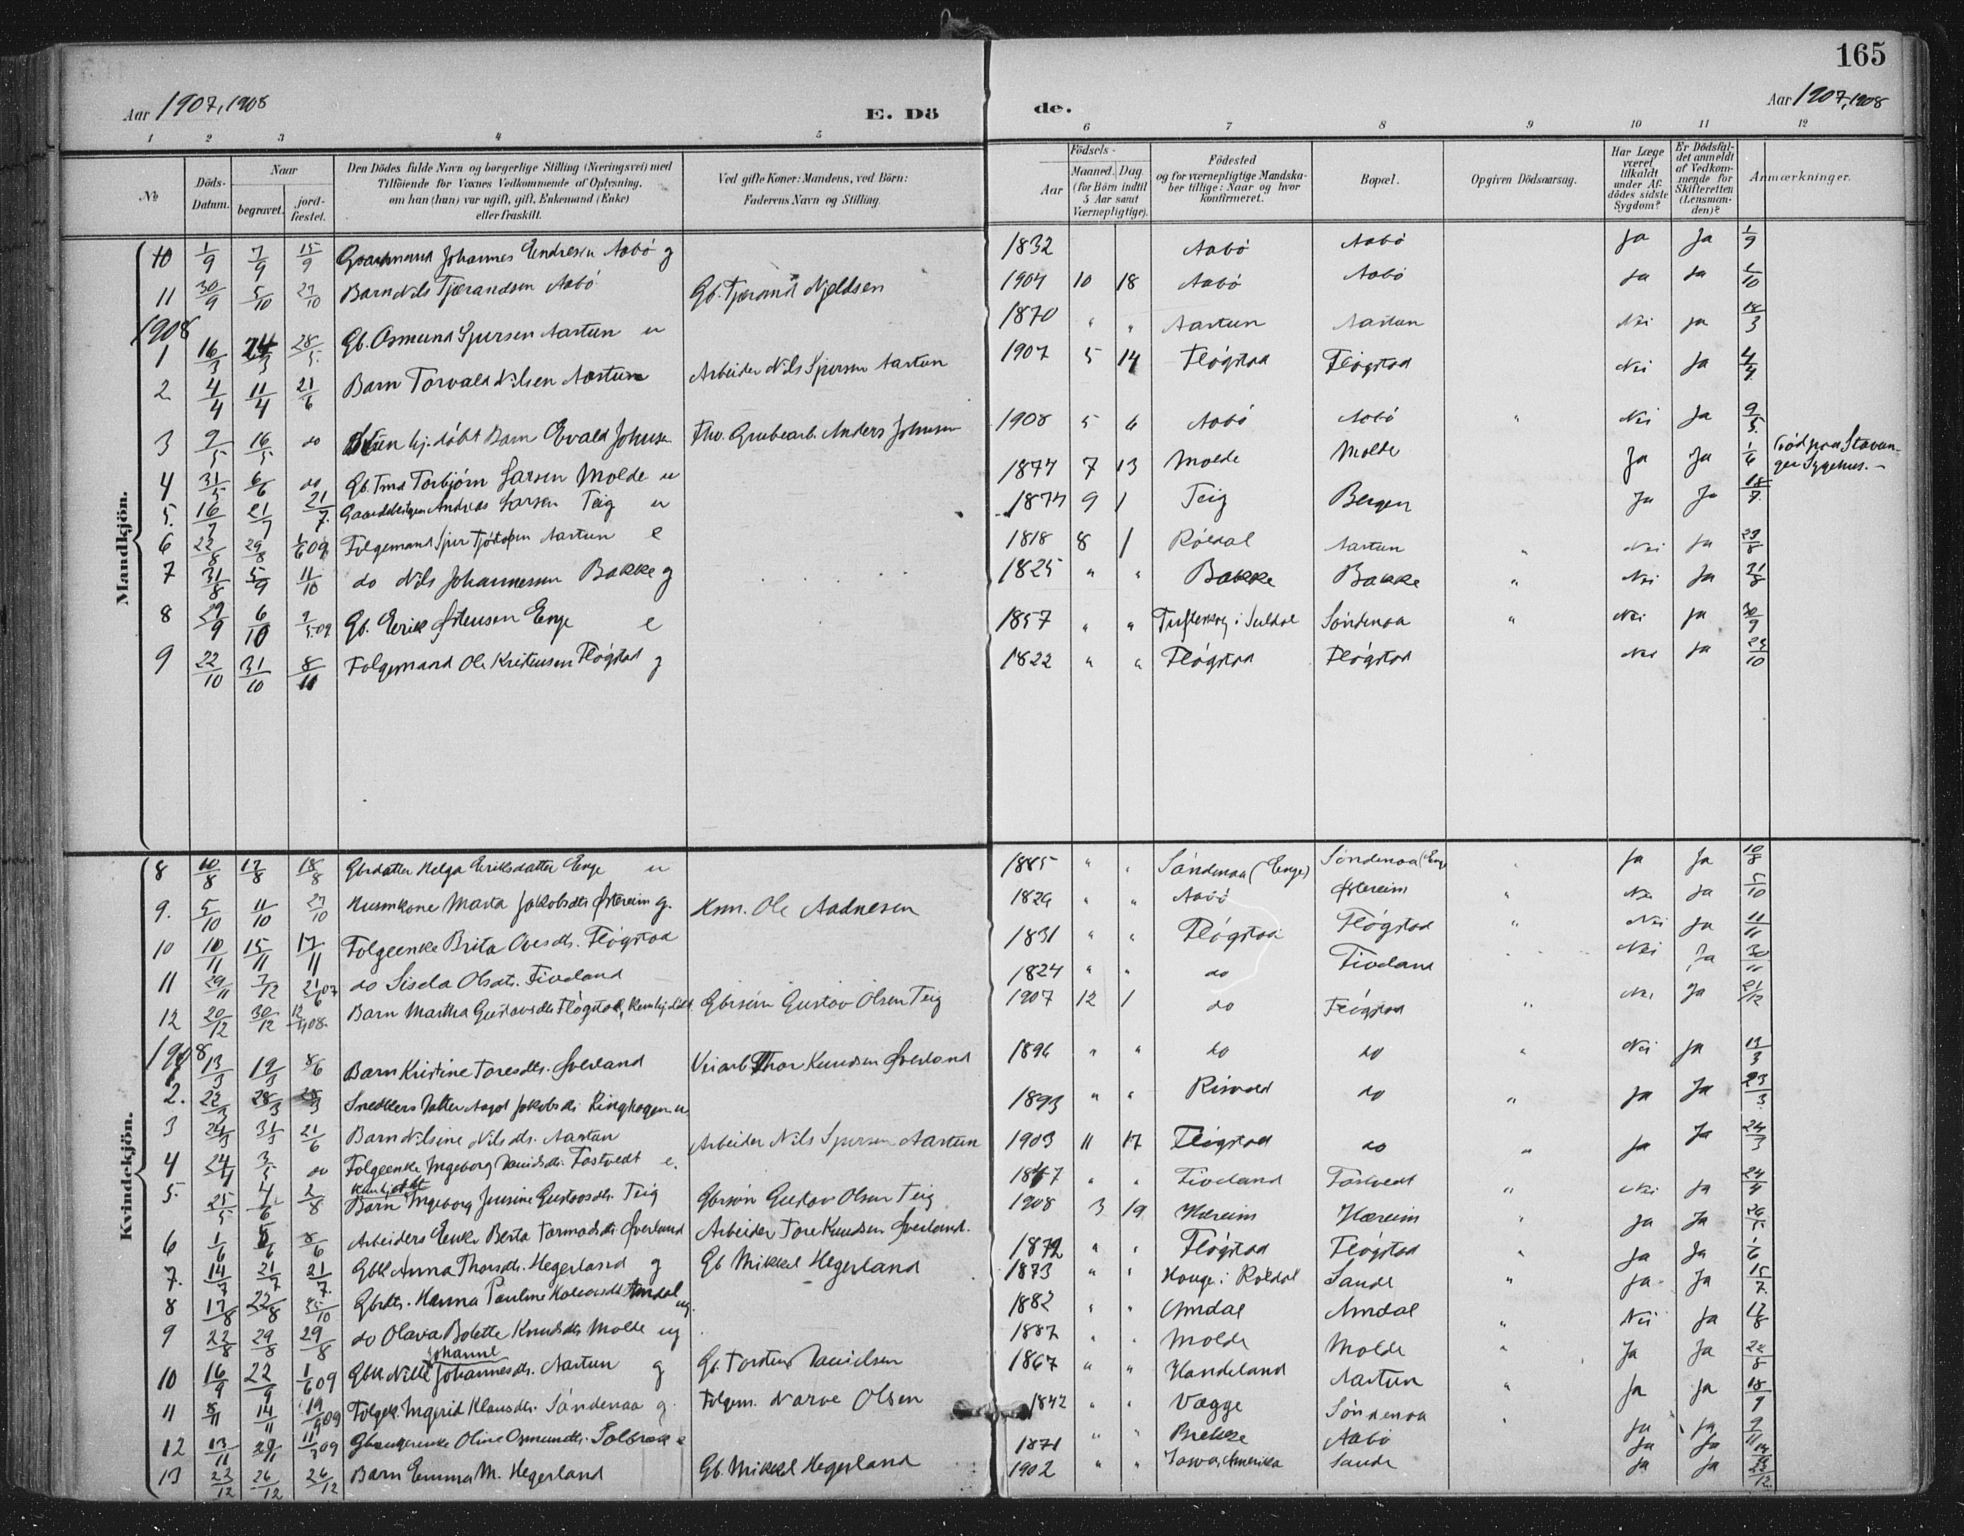 165
Aar 1907, 1908 E. Dö de. Aar 1907, 1908
1 2 3 4 5 6 7 8 9 10 11 12
No. Döds-Datum. Naar begravet. jordfæstet. Den Dödes fulde Navn og borgerlige Stilling (Næringsvei) med Tilföiende for Voxnes Vedkommende af Oplysning, om han (hun) var ugift, gift, Enkemand (Enke) eller fraskilt. Ved gifte Koner: Mandens, ved Börn: Faderens Navn og Stilling. Födsels- Aar Maaned. Dag. (for Börn indtil 5 Aar samt Værnepligtige). Födested og for værnepligtige Mandskaber tillige: Naar og hvor konfirmeret. Bopæl. Opgiven Dödsaarsag. Har Læge været tilkaldt under Afdödes sidste Sygdom? Er Dödsfaldet anmeldt af Vedkommende for Skifteretten (Lensmanden)? Anmærkninger.
Mandkjön.
10 1/9 7/9 15/9 Gaardmand Johannes Endresen Aabö g 1832 Aabö Aabö Ja Ja 1/9
11 30/9 5/10 27/10 Barn Nils Tjærandsen Aabö Gb. Tjærand Njeldsen 1904 10 18 Aabö Aabö Ja Ja
1908
1 16/3 24/3 28/5 Gb. Osmund Sjursen Aartun u 1870 " " Aartun Aartun Nei ja 18/3
2 4/4 11/4 21/6 Barn Torvald Nilsen Aartun Arbeider Nils Sjursen Aartun 1907 5 14 Flögstad Flögstad Nei Ja 4/4
3 9/5 16/5 do hj. döbt Barn Evald Johnsen Grubearb. Anders Johnsen 1908 5 6 Aabö Aabö " Nei Ja 9/5
4 31/5 6/6 do Gb. Tmd Torbjörn Larsen Molde u 1877 7 13 Molde Molde Ja Ja 1/6 Död paa Stavanger Sygehus. -
5. 16/7 21/7 21/7. Andreas Larsen Teig u 1874 9 1 Teig Bergen Ja Ja 18/7.
6 22/8 29/8 1/6 09 Folgemand Sjur Aartun e 1818 8 1 Röldal Aartun " Nei Ja 23/8
7 31/8 5/9 11/10 do Nils Johannessen Bakke g 1825 " " Bakke Bakke " Nei Ja 31/8
8 29/9 6/10 09 Gb. Eerik Östensen Enge e 1857 " " i Suldal Söndenaa " Nei Ja 30/9
9 22/10 31/10 8/11 Folgemand Ole Kristensen Flögstad g 1822 " " Flögstad Flögstad Nei Ja 24/10
Kvindekjön.
8 10/8 17/8 18/8 Gbrdatter Helga Eriksdatter Enge u 1885 " " Söndenaa (Enge) Söndenaa (Enge Ja Ja 10/8
9. 5/10 11/10 27/10 Husmkone Marta Jakobsdtr Östereim g. Hsm. Ole Aadnesen 1824 " " Aabö Östereim Nei Ja
10 10/11 15/11 17/11 Folgeenke Brita Ovesdtr. Flögstad 1831 " " Flögstad Flögstad " Nei Ja 11/11
11 29/11 7/12 do Sisela Olsdtr. Fiveland 1824 " " do Fiveland Nei Ja 30/11
12 20/12 30/12 Barn Martha Gustavsdtr Flögstad, hjdöbt Gbrsön Gustav Olsen Teig 1907 12 1 do Flögstad " Nei Ja 21/12
1908
1. 13/3 19/3 8/6 Barn Kristine Toresdtr. Överland Veiarb Thore Knudsen Överland 1896 " " do do " Nei Ja 13/3
2. 22/3 28/3 Snedkers datter Aagot Jakobsdtr Ringhagen u 1893 " " Risvold do " Ja Ja 23/3
3 24/3 31/3 21/6 Barn Nilsine Nilsdtr. Aartun Arbeider Nils Sjursen Aartun 1903 11 17 Flögstad do " Ja Ja 24/3
4 24/4 3/5 do Folgeenke Ingeborg Davidsdtr. Fastvedt e. " " Fiveland Fastvedt " Nei Ja 24/4
5. 25/5 4/6 2/8 Barn Ingeborg Jensine Gustavsdtr. Teig Gbrsön Gustav Olsen Teig 1908 3 19 Hæreim Hæreim " Ja Ja 26/5
6 1/6 8/6 Arbeiders Enke Berta Tormodsdtr Överland Arbeider Tore Knudsen Överland. 1872 " " Flögstad Flögstad " Ja Ja 1/6
7. 14/7 21/7 21/7. Gbk Anna Thorsdtr. Hegerland g Gb Mikkel Hegerland 1873 " " Houge i Röldal Sande " Ja Ja 15/7.
8 17/8 22/8 25/10 Gbrdtr. Hanna Pauline Amdal ug. 1882 " " Amdal Amdal " Nei Ja 17/8
9 22/8 29/8 29/8 do Olava Bolette Knudsdtr Molde ug 1887 " " Molde Molde " Ja Ja 22/8
10 16/9 22/9 1/6 09 Gbk Nille Johanne Johannesdtr. Aartun g Gb. Torsten Davidsen 1867 " " Handeland Aartun " Ja Ja 18/9
11 8/11 14/11 Folgek. Ingerid Klausdtr. Söndenaa g. Folgem. Narve Olsen 1842 " " Vægge Söndenaa " Ja Ja 9/11
12 13/11 Oline Osmundsdtr. Solbrek e 1871 " " Brekke Aabö Ja Ja
13 23/12 26/12 26/12 Barn Emma M. Hegerland Gb. Mikkel Hegerland 1902 " " Iowa, Amerika Sande Ja Ja 23/12.